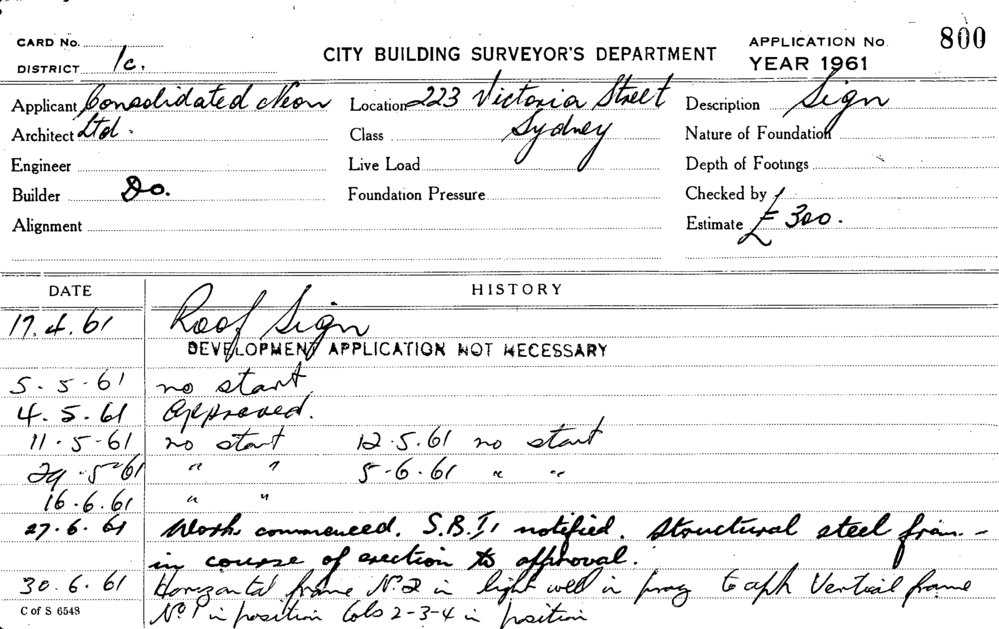 CARD No.
DISTRICT 1c.
CITY BUILDING SURVEYOR'S DEPARTMENT
APPLICATION No 800
YEAR 1961
Applicant Consolidated Neon Location 223 Victoria Street Description Sign
Architect Ltd. Class Sydney Nature of Foundation
Engineer Live Load Depth of Footings
Builder Do. Foundation Pressure Checked by
Alignment Estimate £300.
DATE HISTORY
17.4.61 Roof Sign
DEVELOPMENT APPLICATION NOT NECESSARY
5-5-61 no start
4.5.61 Approved.
11.5-61 no start 12.5.61 no start
29.5.61 " " 5-6.61 " "
16.6.61 " "
27.6.61 Work commenced. S.B.I. notified. Structural steel fram-
in course of erection to approval.
30.6.61 Horizontal frame No.2 in light well in prog to aph Vertical frame
C of S 6548 No 1 in position Cols 2-3-4 in position